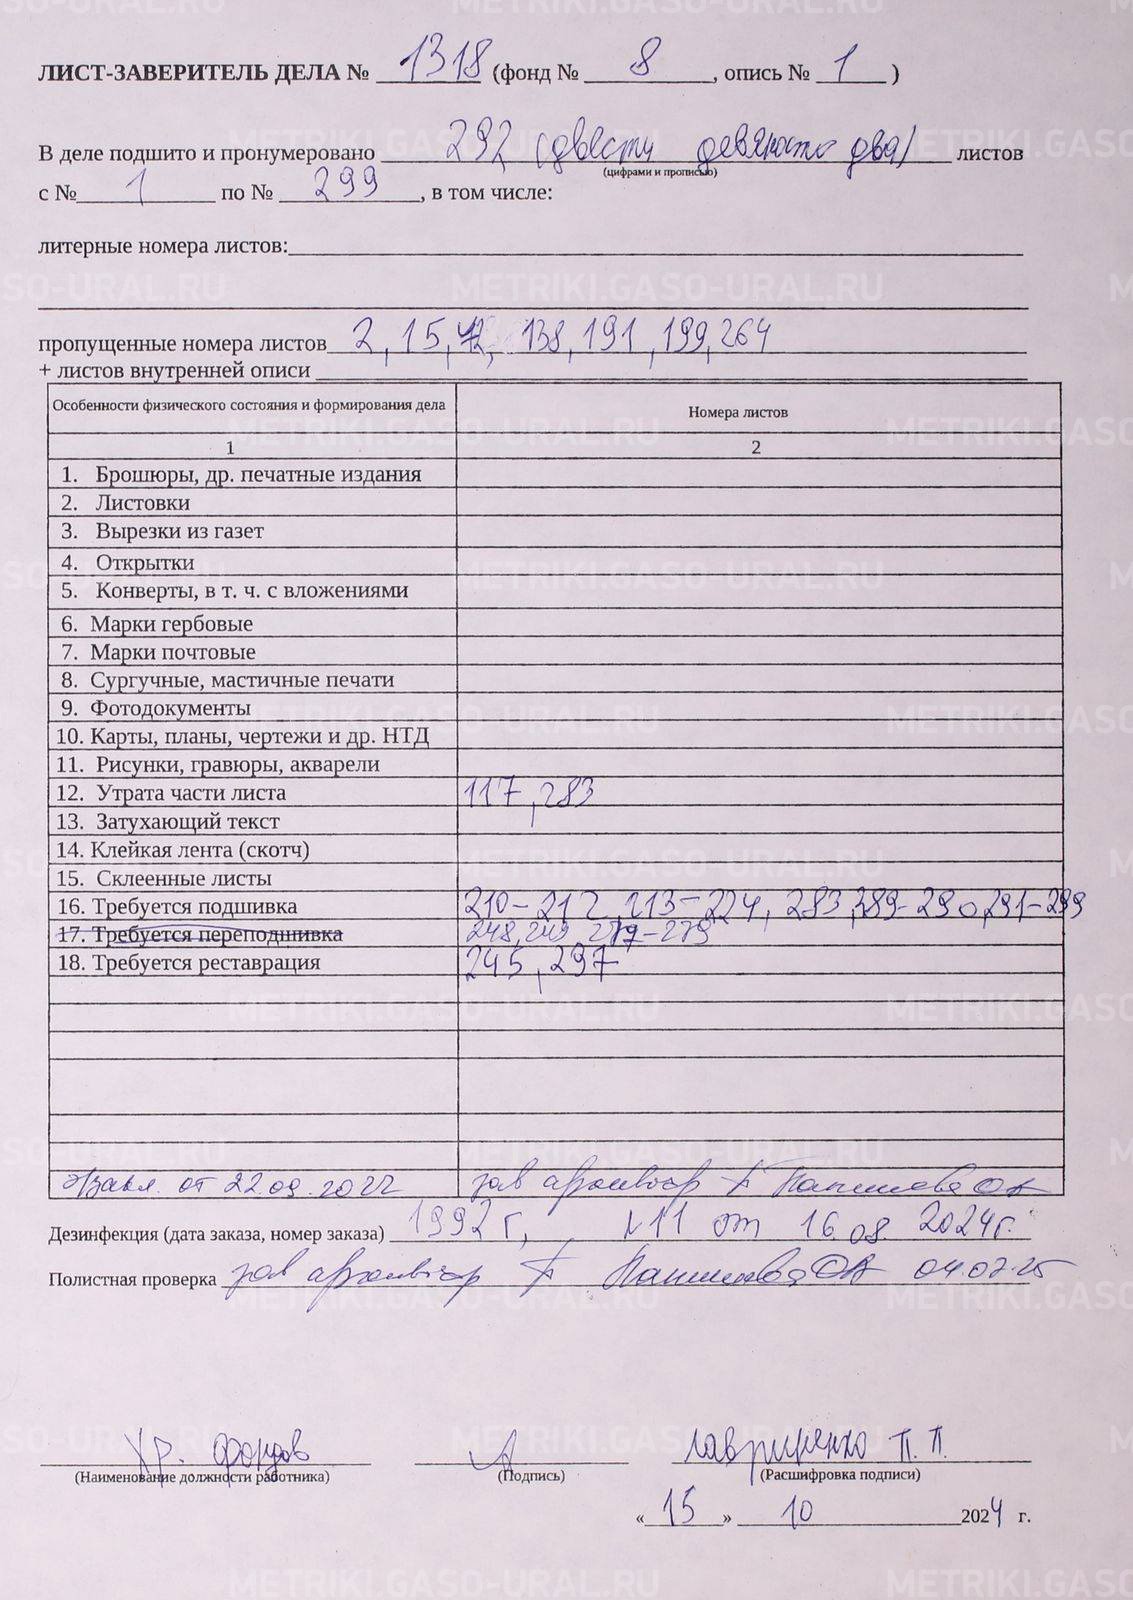 ЛИСТ-ЗАВЕРИТЕЛЬ ДЕЛА № 1318 (фонд № 8, опись № 1)
В деле подшито и пронумеровано 292 (двести девяносто два) листов
(цифрами и прописью)
с № 1 по № 299, в том числе:
литерные номера листов:
пропущенные номера листов 2, 15, 42, 138, 191, 199, 264
+ листов внутренней описи
Особенности физического состояния и формирования дела Номера листов
1 2
1. Брошюры, др. печатные издания
2. Листовки
3. Вырезки из газет
4. Открытки
5. Конверты, в т. ч. с вложениями
6. Марки гербовые
7. Марки почтовые
8. Сургучные, мастичные печати
9. Фотодокументы
10. Карты, планы, чертежи и др. НТД
11. Рисунки, гравюры, акварели
12. Утрата части листа 117, 283
13. Затухающий текст
14. Клейкая лента (скотч)
15. Склеенные листы
16. Требуется подшивка 210-212, 213-224, 283, 289-290, 291-299
17. Требуется переподшивка 248, 249, 277-279
18. Требуется реставрация 245, 297
от 22.09.2022 зав архивохр
Дезинфекция (дата заказа, номер заказа) 1992 г, №11 от 16.08.2024г.
Полистная проверка зав архивохр 04.02.25
Хр. фондов Лавриненко П. П.
(Наименование должности работника) (Подпись) (Расшифровка подписи)
«15» 10 2024 г.
METRIKI.GASO-URAL.RU